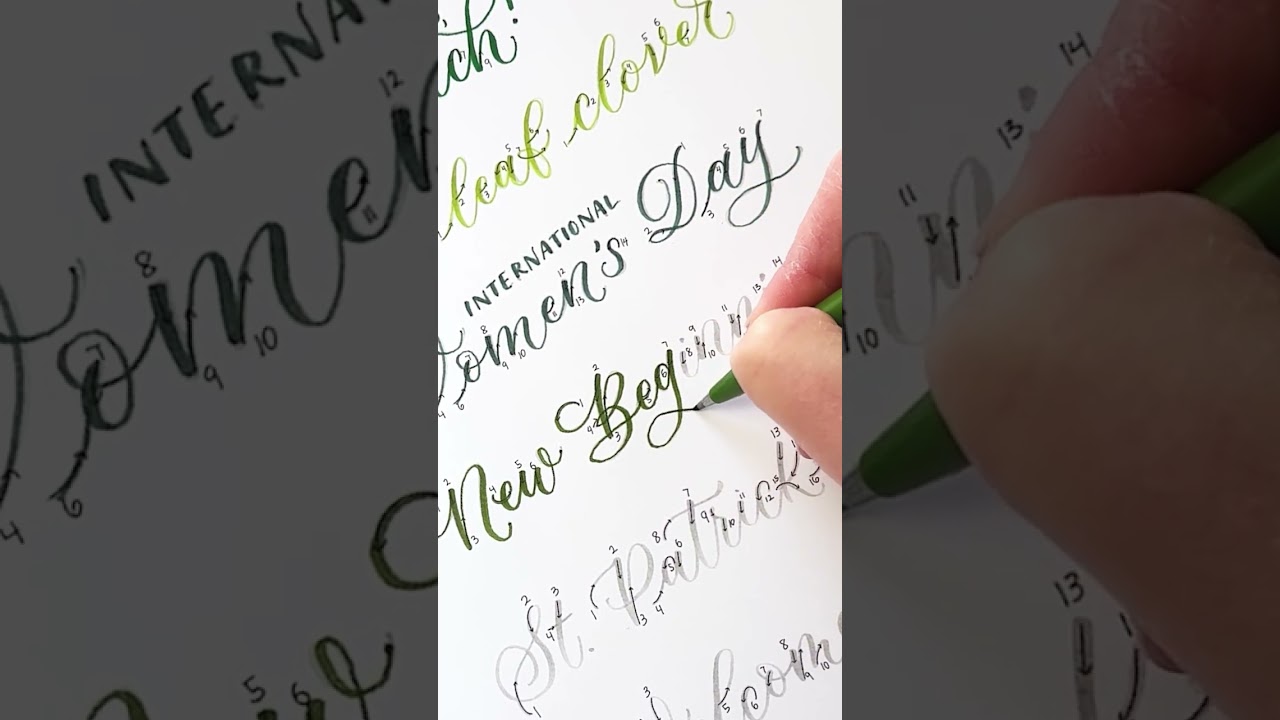 leaf clover
INTERNATIONAL
Women's Day
New Beginni
St. Patrick's